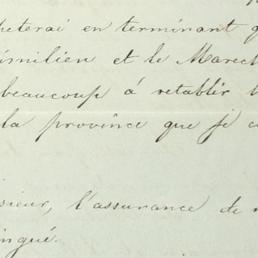 heterai en terminant q
imilien et le Marech
beaucoup á retablir
la province que je c
sieur, l'assurance de
ingué.